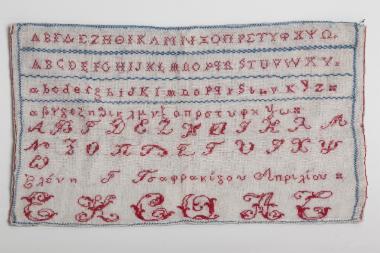 ΑΒΓΔΕΖΗΘΙΚΛΜΝΞΟΠΡΣΤΥΦΧΨΩ
ABCDEFGHIJKLMNOPQRSTUVWXYZ
abcdefghijklmnopqrstuvxyz
αβγδεζηθικλμνξοπρστυφχψω
ΑΒΓΔΕΖΗΘΙΚΛΜ
ΝΞΟΠΡΣΤΥΦΧΨ
Ω
Ελένη Γ Τσαφρακίδου Απριλίου